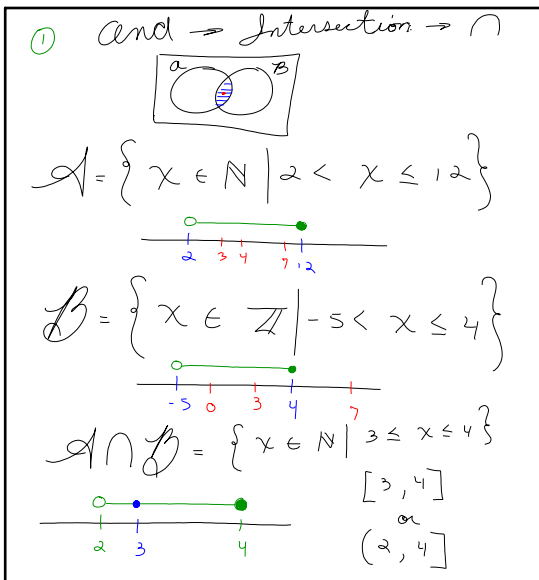 ① and → Intersection → ∩
a B
A = { x ∈ ℕ | 2 < x ≤ 12 }
2 3 4 7 12
B = { x ∈ ℤ | -5 < x ≤ 4 }
-5 0 3 4 7
A ∩ B = { x ∈ ℕ | 3 ≤ x ≤ 4 }
[3, 4]
or
(2, 4]
2 3 4